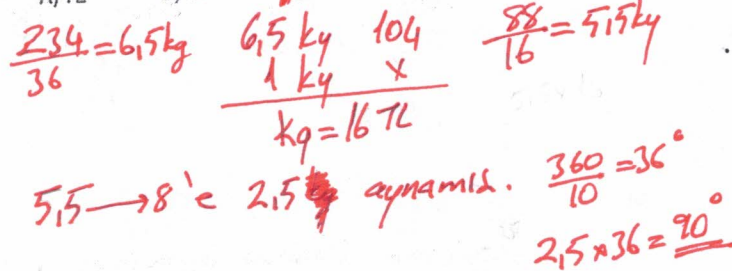 234/36 = 6,5kg
6,5 ky 104
1 ky x
kg = 16 TL
88/16 = 5,5ky
5,5 → 8'e 2,5 aynamıd.
360/10 = 36°
2,5 x 36 = 90°